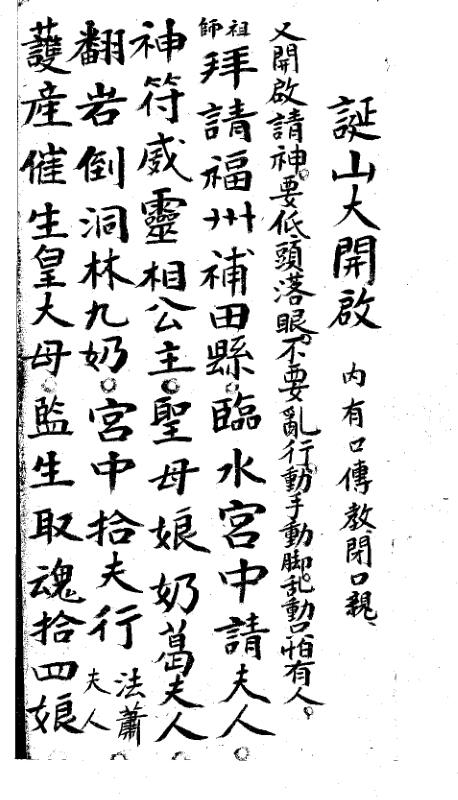 誕山大開啟 内有口傳教閉口親、
又開啟請神。要低頭落眼。不要亂行動手動脚。乱動只怕有人。
祖師 拜請福州補田縣。臨水宮中請夫人。
神符威靈相公主。聖母娘奶葛夫人
翻岩倒洞林九奶。宮中拾夫行 法蕭夫人
護産催生皇大母。監生取魂拾四娘